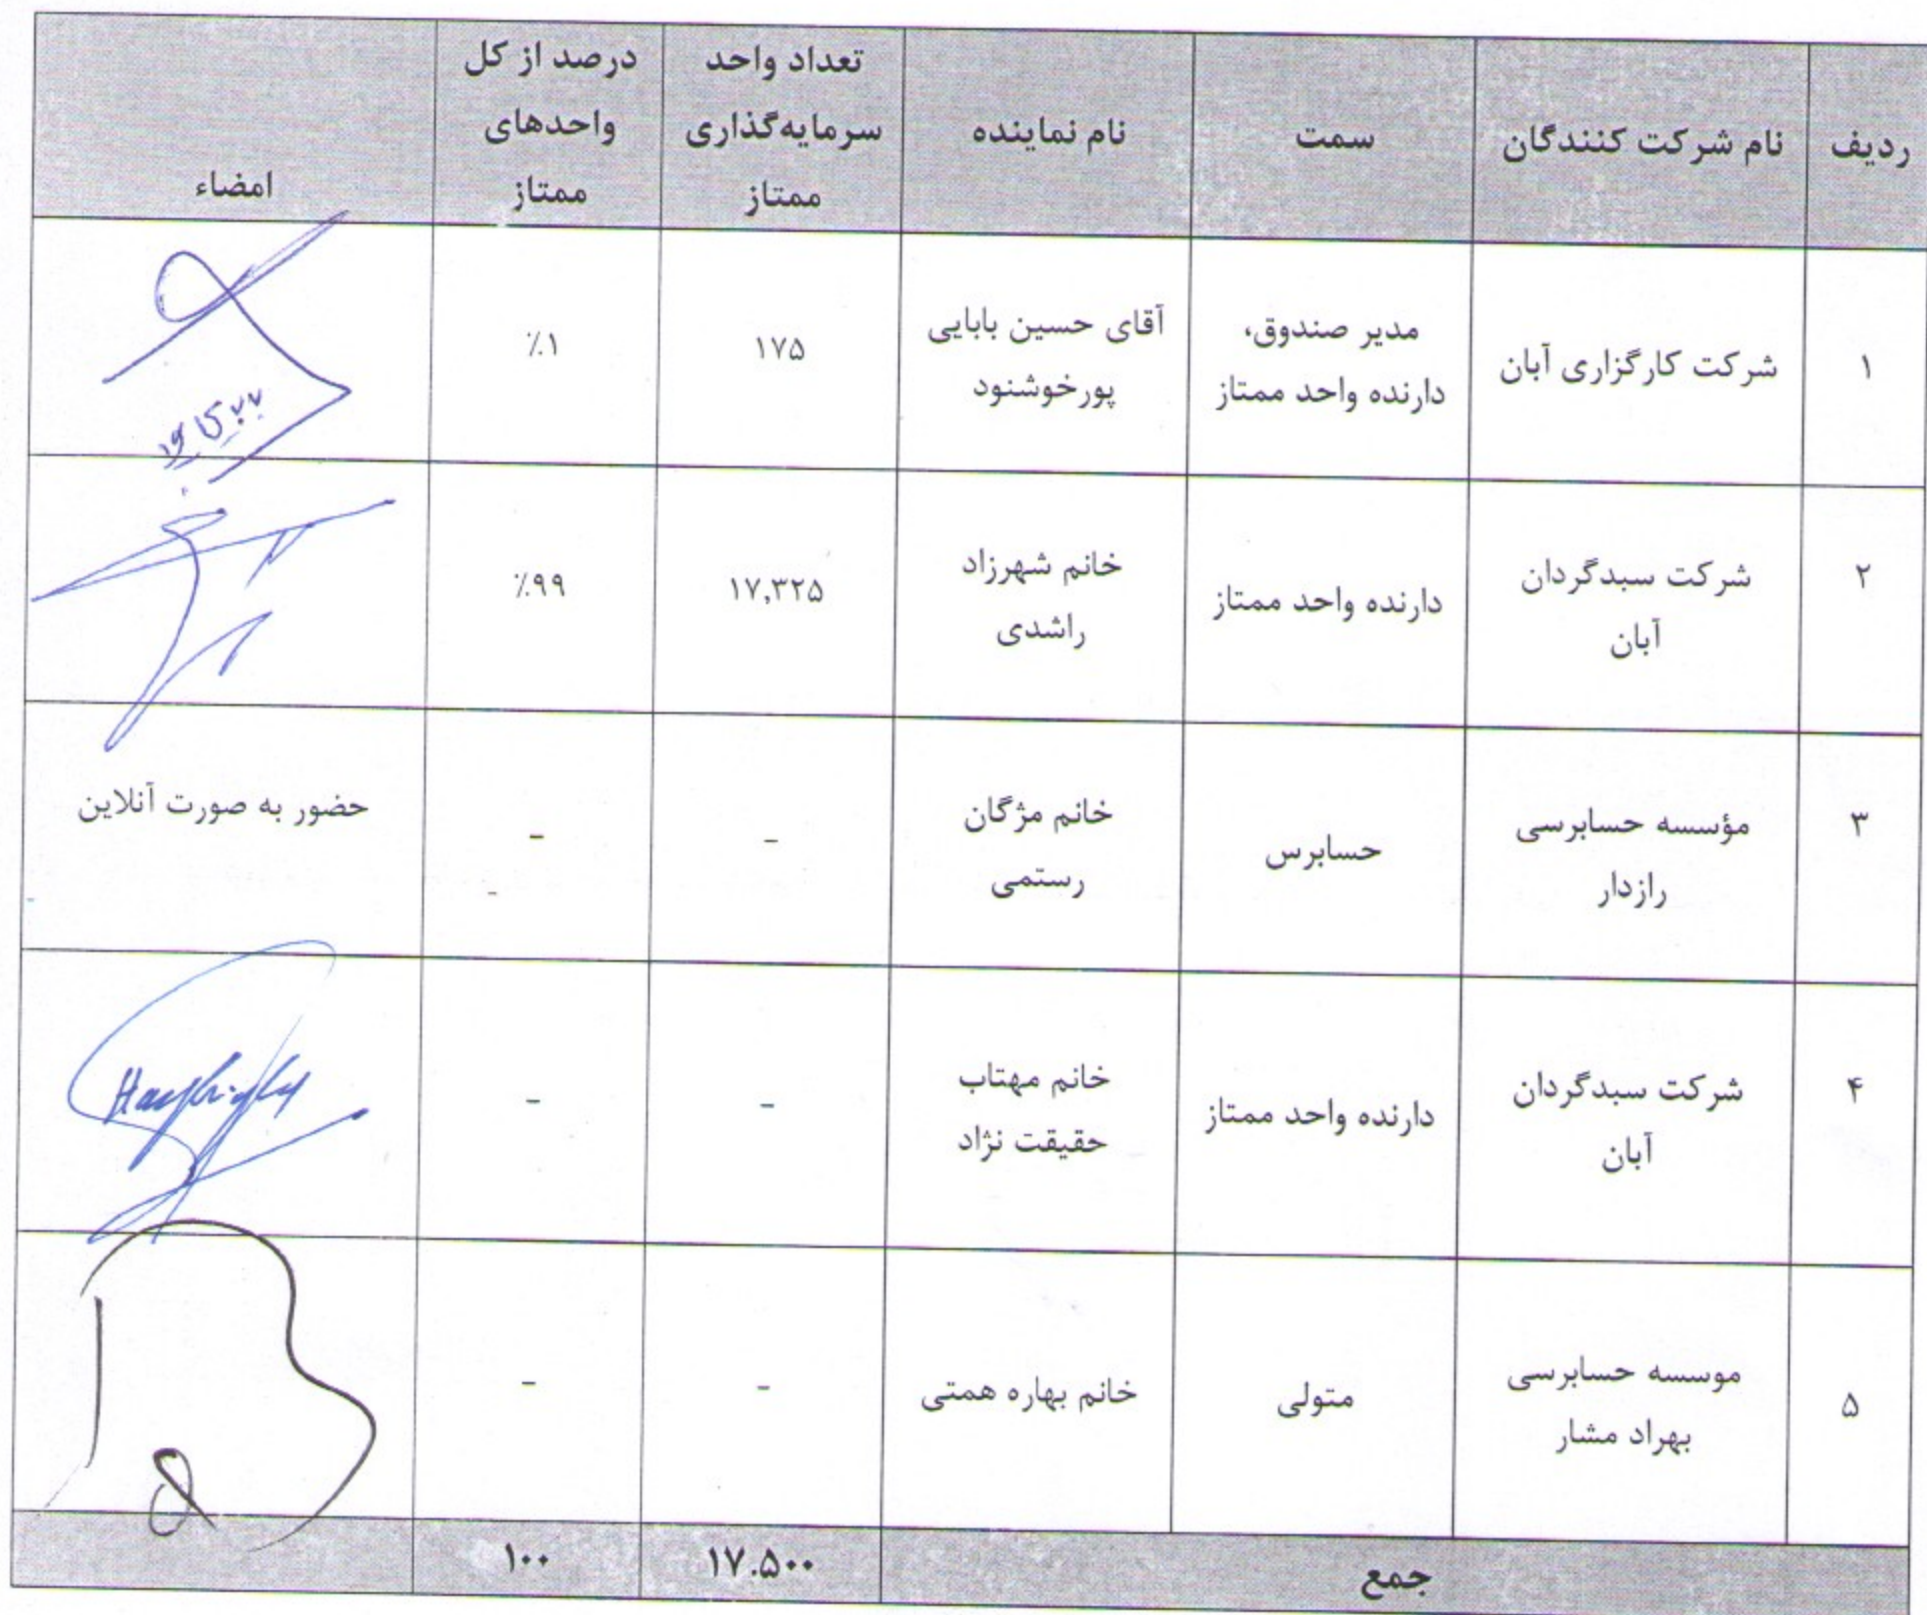 ردیف
نام شرکت کنندگان
سمت
نام نماینده
تعداد واحد
سرمایه‌گذاری
ممتاز
درصد از کل
واحدهای
ممتاز
امضاء
۱
شرکت کارگزاری آبان
مدیر صندوق،
دارنده واحد ممتاز
آقای حسین بابایی
پورخوشنود
۱۷۵
٪۱
۲
شرکت سبدگردان
آبان
دارنده واحد ممتاز
خانم شهرزاد
راشدی
۱۷,۳۲۵
٪۹۹
۳
مؤسسه حسابرسی
رازدار
حسابرس
خانم مژگان
رستمی
-
-
حضور به صورت آنلاین
۴
شرکت سبدگردان
آبان
دارنده واحد ممتاز
خانم مهتاب
حقیقت نژاد
-
-
۵
موسسه حسابرسی
بهراد مشار
متولی
خانم بهاره همتی
-
-
جمع
۱۷.۵۰۰
۱۰۰